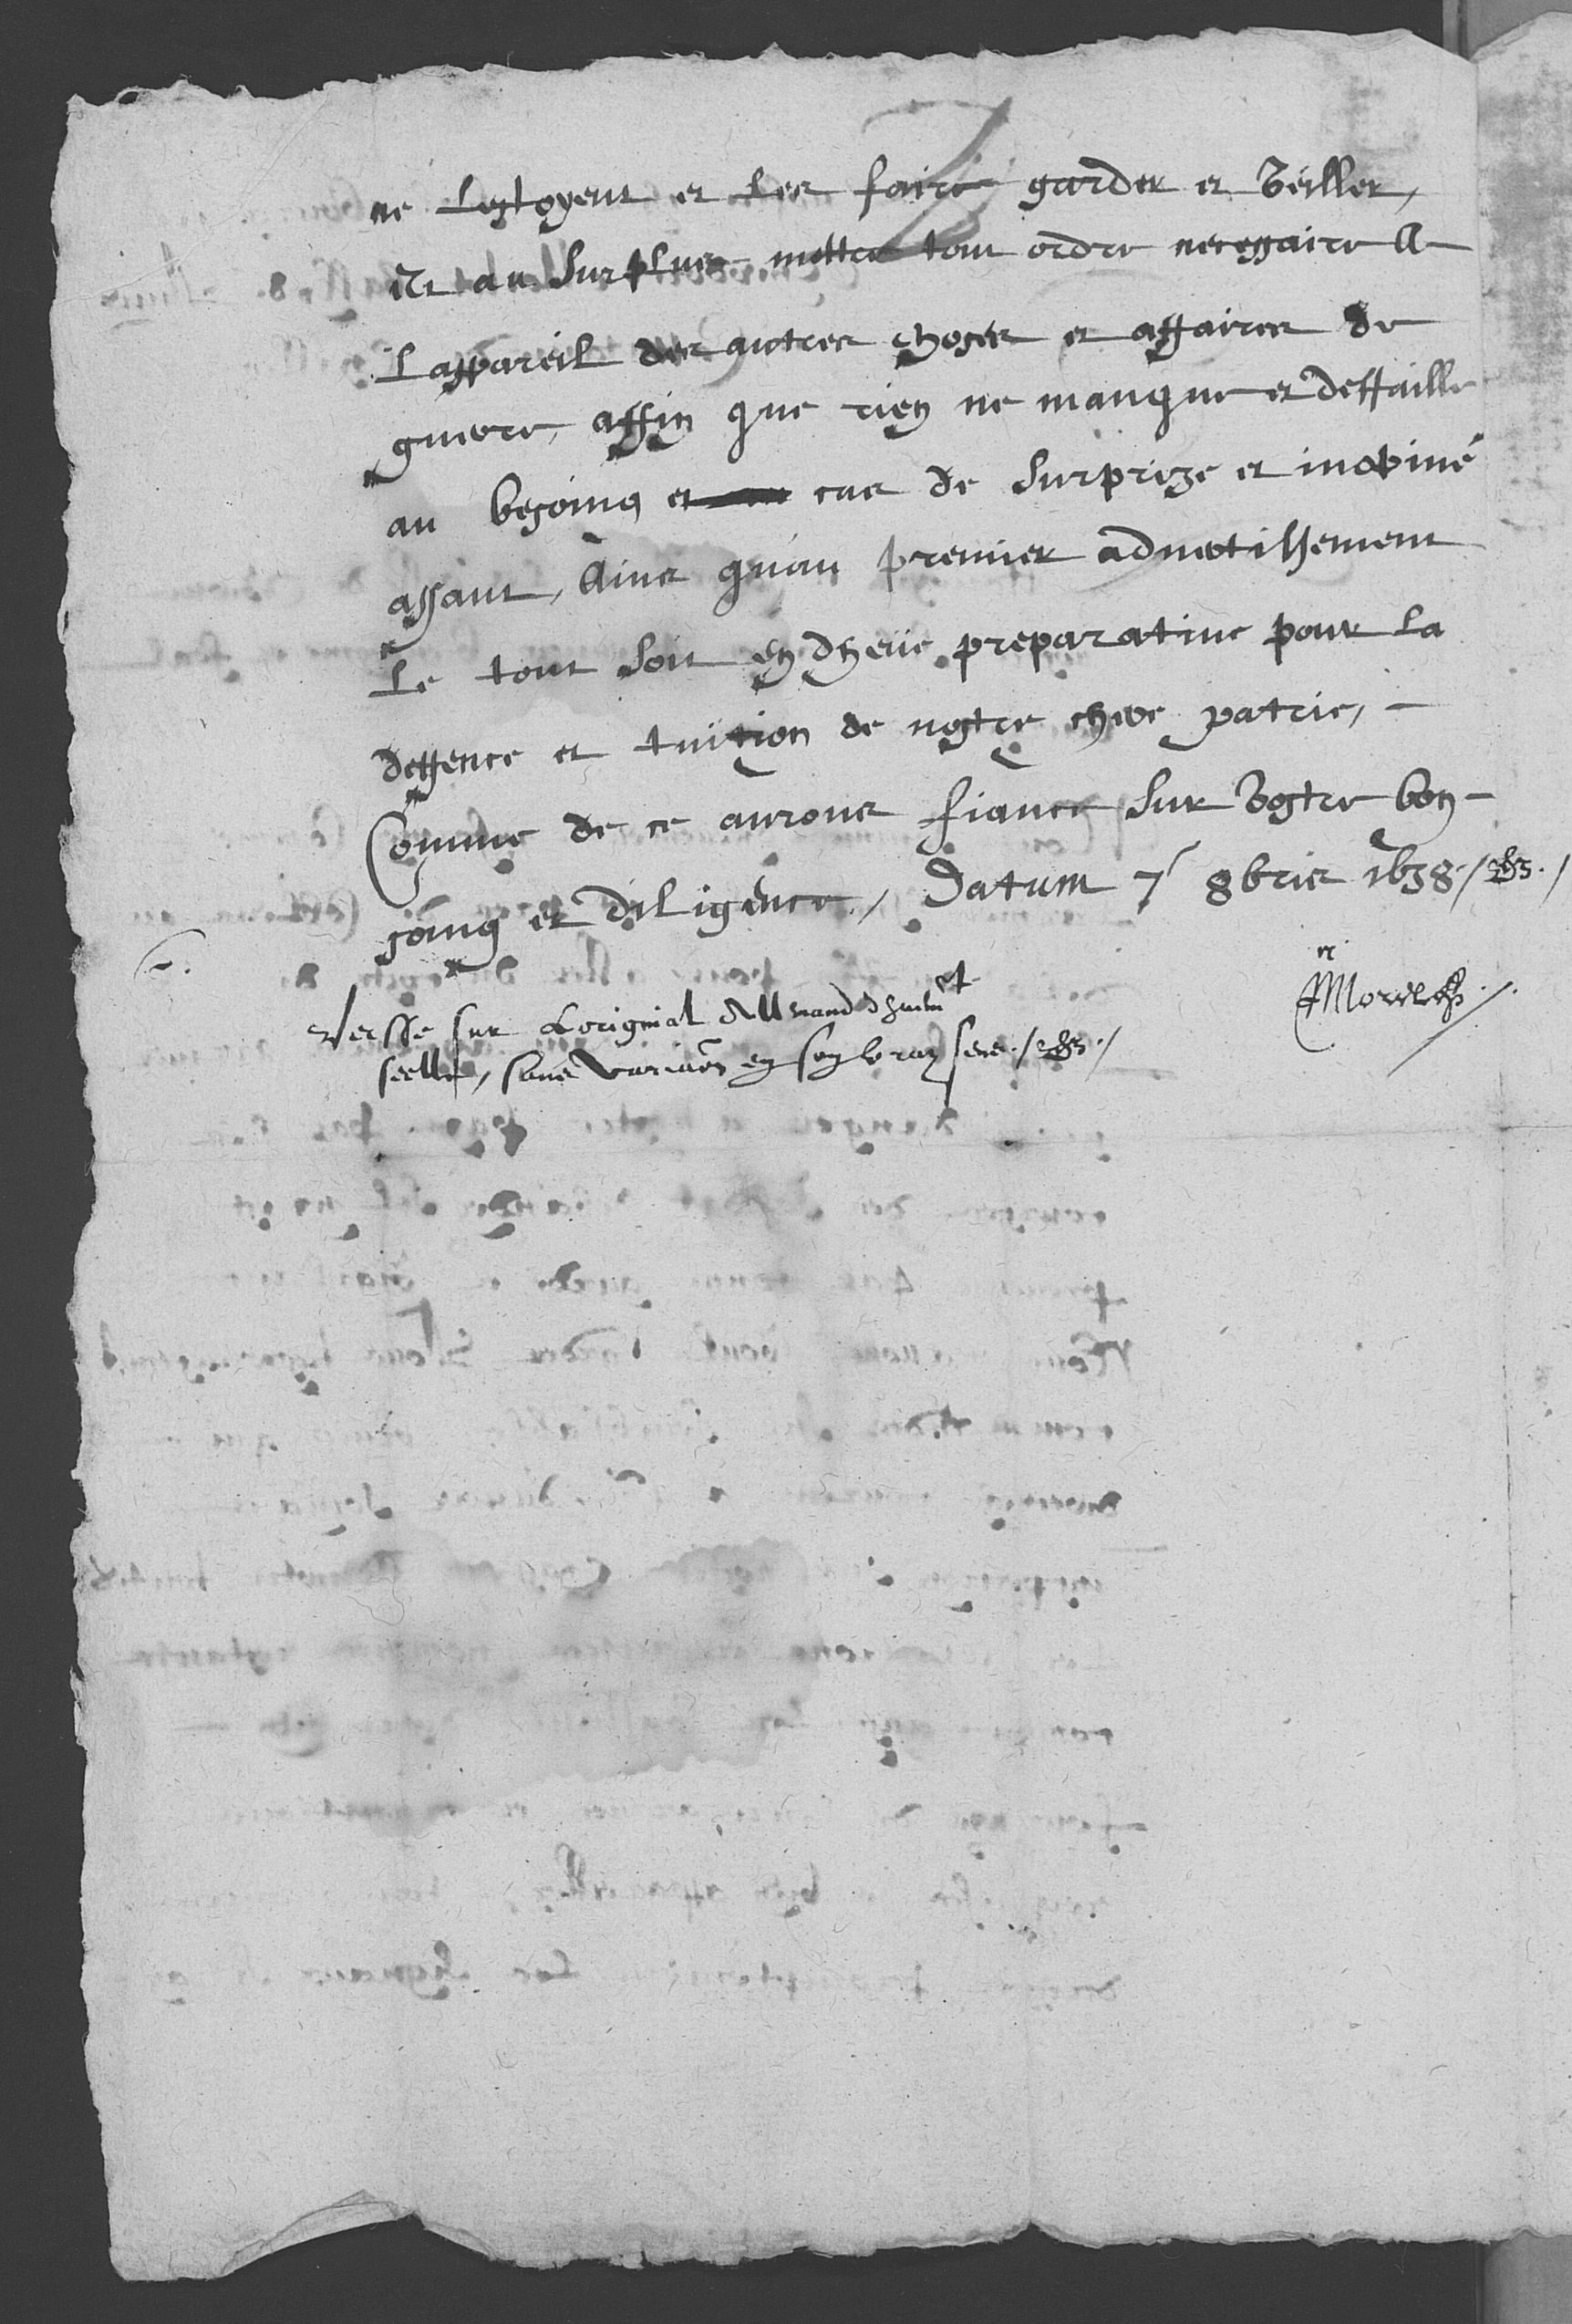 ne lestoyent et les faire garder et veiller,
Et au surplus mettre tout ordre necessaire a
Lappareil des autres choses et affaires de
guerre, affin que rien ne manque et deffaille
au besoing et cas de surprize et inopiné
assaut, Ains quau premier advertissement
Le tout soit en dheüe preparative pour la
deffence et tuition de nostre chere patrie,
Comme de ce aurons fiance sur vostre bon
soing et diligence, Datum 7 8bris 1638
Versse sur Loriginal Allemand dhuem^t
seellé, sans variaon en son vray sens